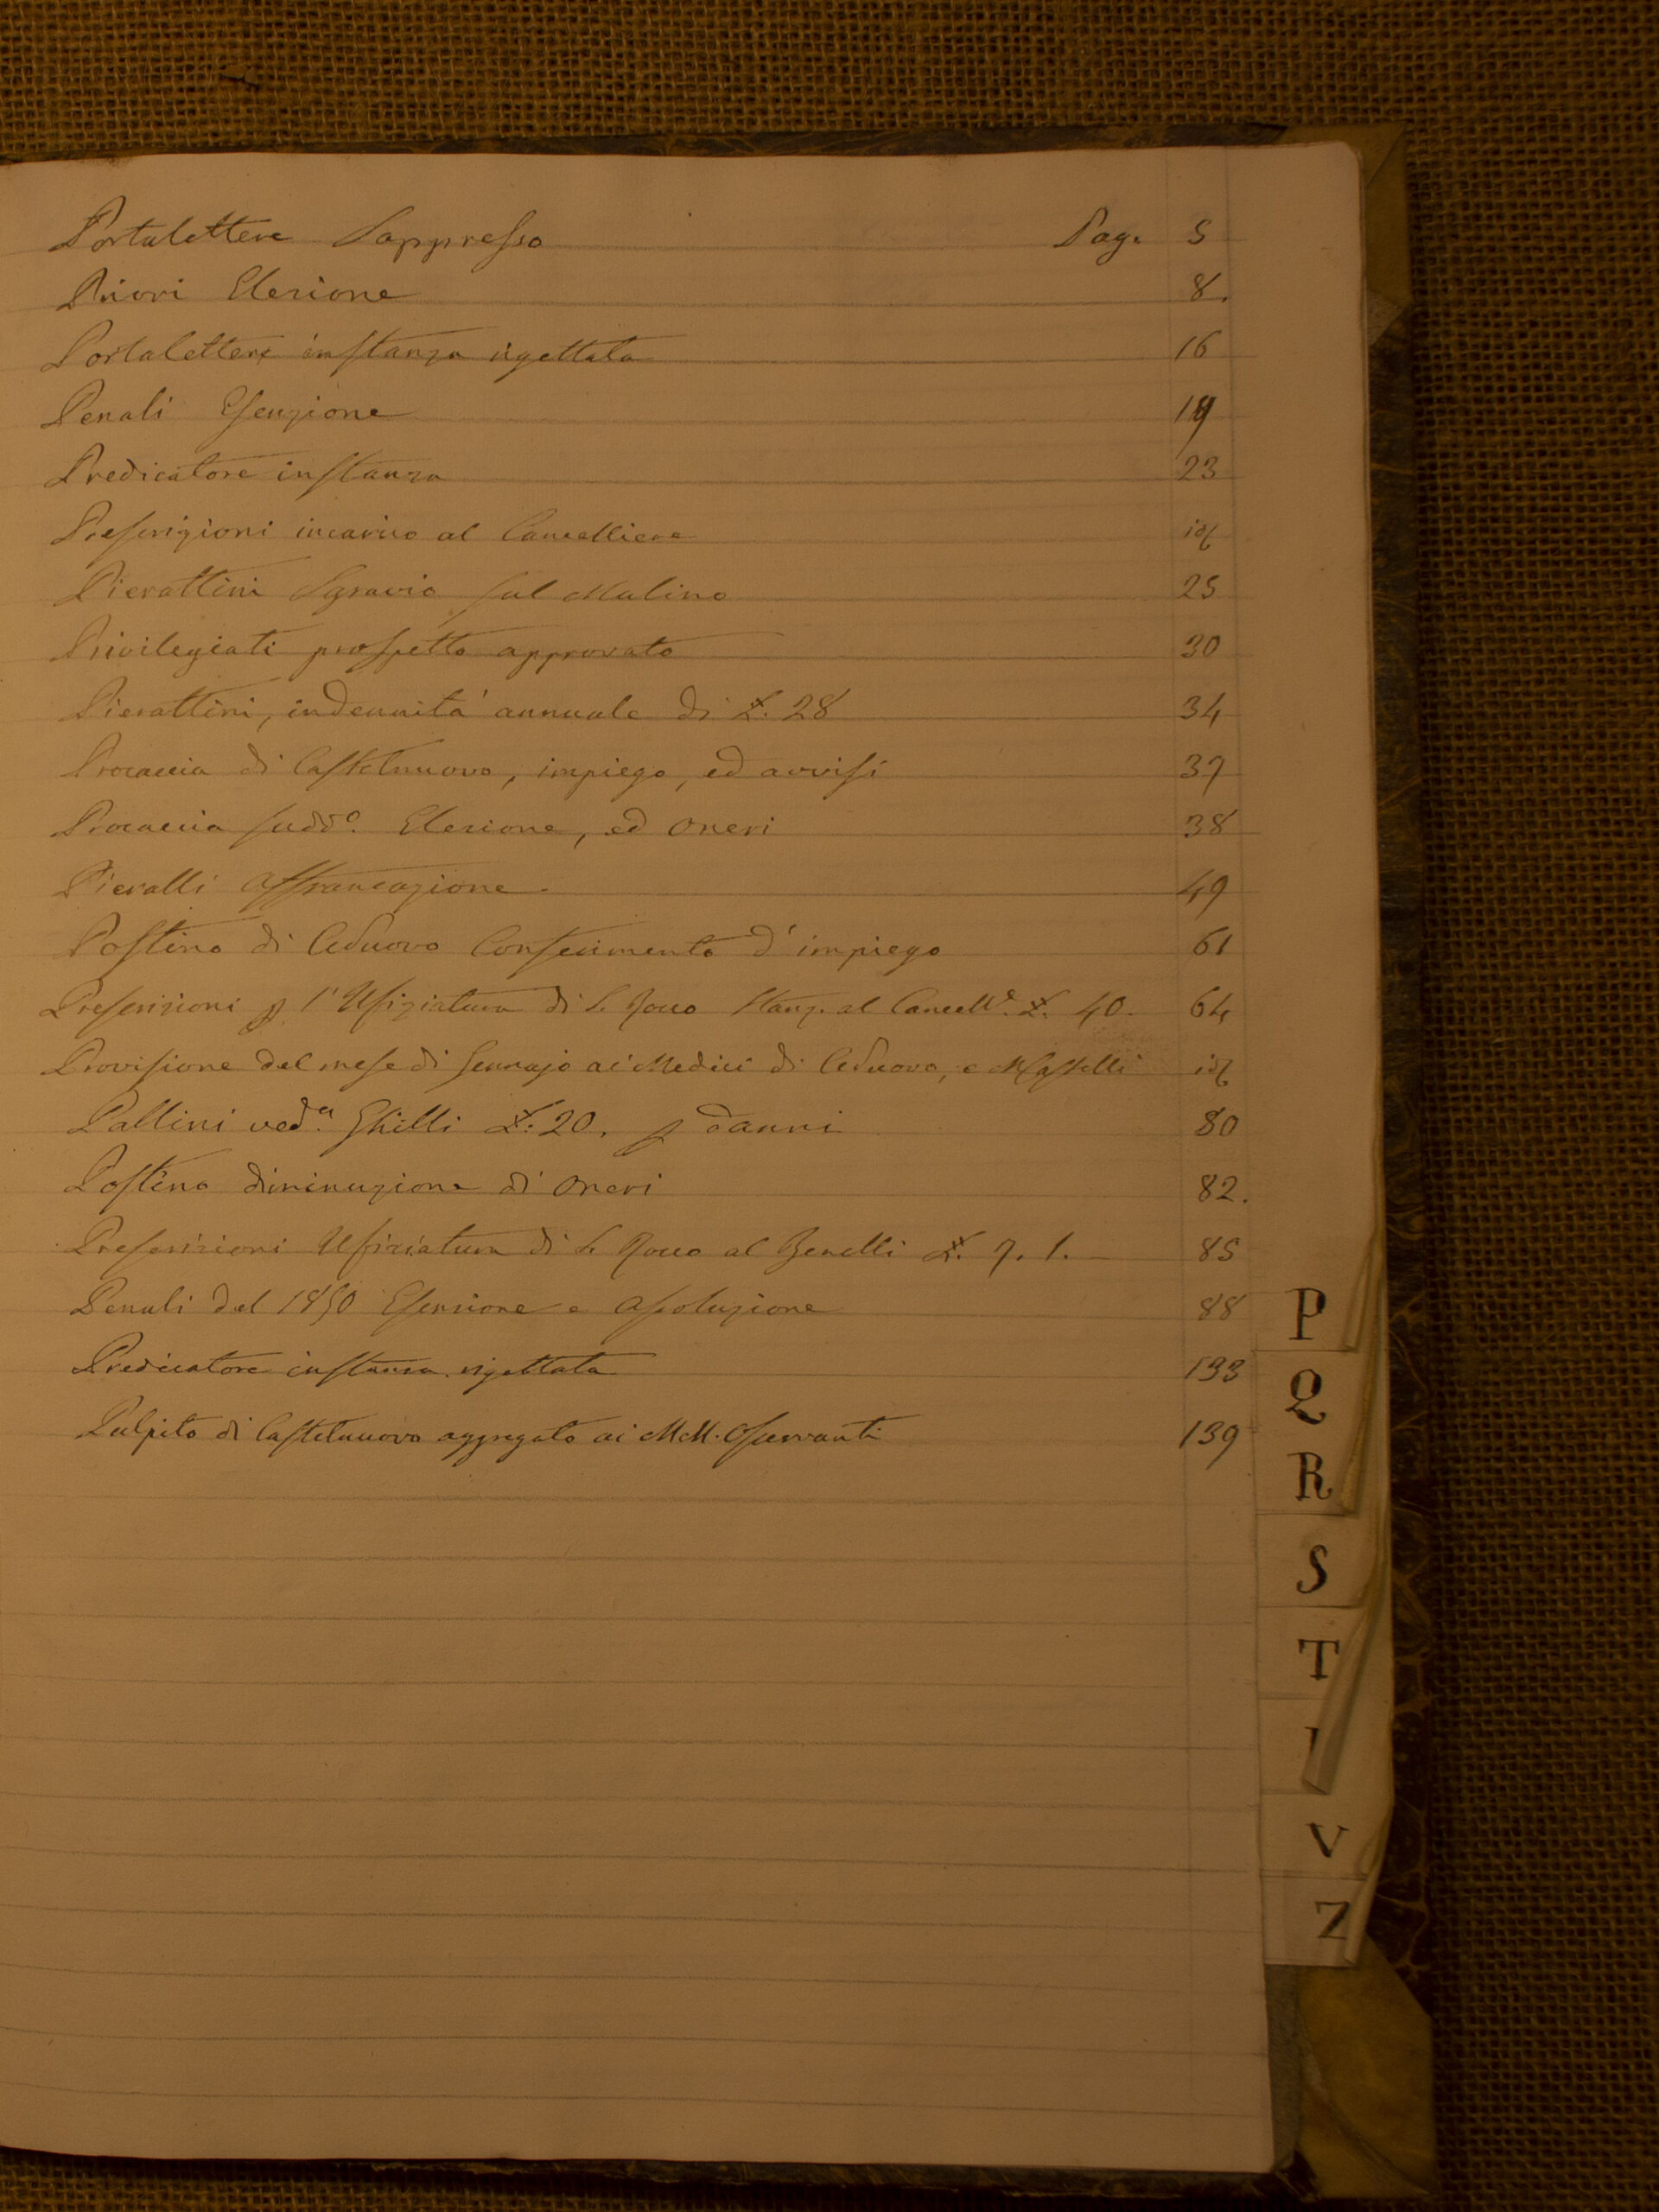 Portalettere Soppresso Pag. 5
Priori Elezione 8.
Portalettere instanza rigettata 16
Penali Esenzione 19
Predicatore instanza 23
Prescrizioni incarico al Cancelliere id.
Pierattini Sgravio sul Mulino 25
Privilegiati prospetto approvato 30
Pierattini, indennità annuale di £. 28 34
Procaccia di Castelnuovo, impiego, ed avvisi 37
Procaccia sudd.o Elezione, ed oneri 38
Pieralli Affrancazione 49
Postino di C.Nuovo Conferimento d'impiego 61
Prescrizioni p l'Ufiziatura di S. Rocco Stanz. al Cancell.e £. 40. 64
Provisione del mese di Gennajo ai Medici di C.Nuovo, e M.Castelli id.
Pallini ved.a Ghilli £. 20. p danni 80
Postino diminuzione di oneri 82.
Prescrizioni Ufiziatura di S. Rocco al Benelli £. 7. 1. 85
Penali del 1850 Esenzione e Assoluzione 88
Predicatore instanza rigettata 133
Pulpito di Castelnuovo aggregato ai M.M. Osservanti 139
P
Q
R
S
T
V
Z